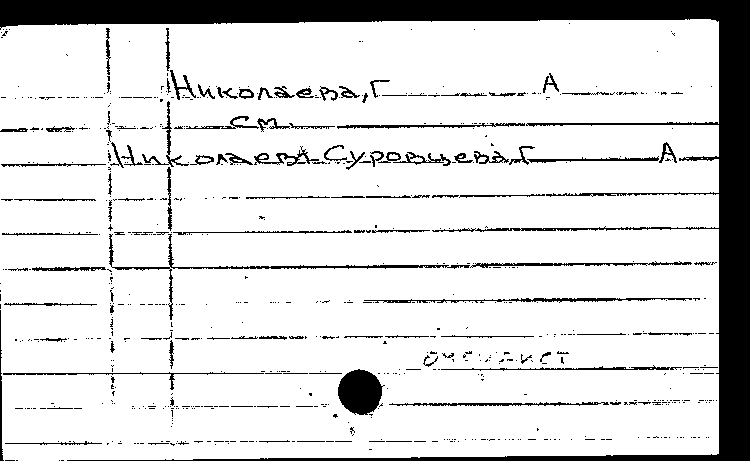 Николаева, Г А
см.
Николаева-Суровцева, Г А